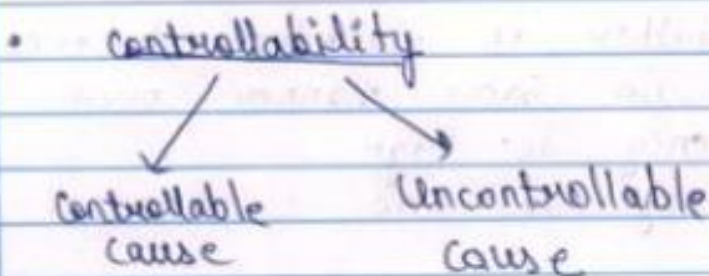 • Controllability
Controllable Uncontrollable
cause cause